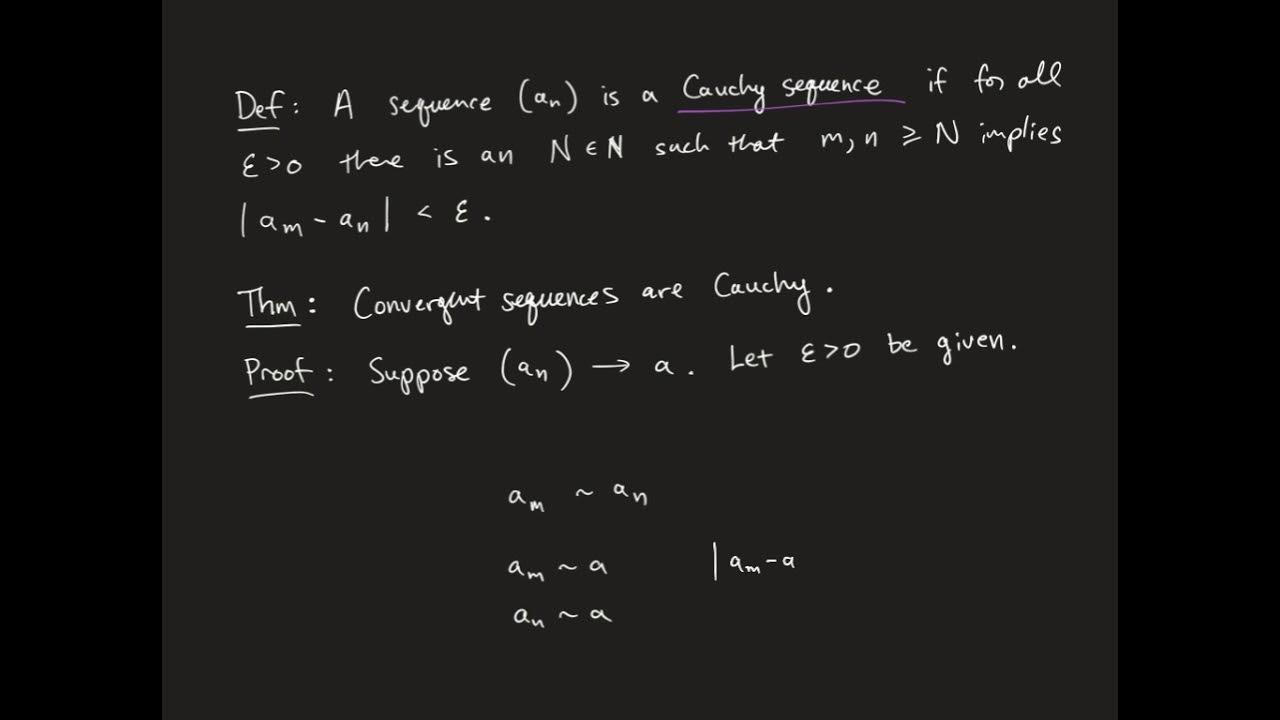 Def: A sequence (aₙ) is a Cauchy sequence if for all
ε>0 there is an N ∈ ℕ such that m, n ⩾ N implies
|aₘ - aₙ| < ε.
Thm: Convergent sequences are Cauchy.
Proof: Suppose (aₙ) → a. Let ε>0 be given.
aₘ ~ aₙ
aₘ ~ a |aₘ - a
aₙ ~ a